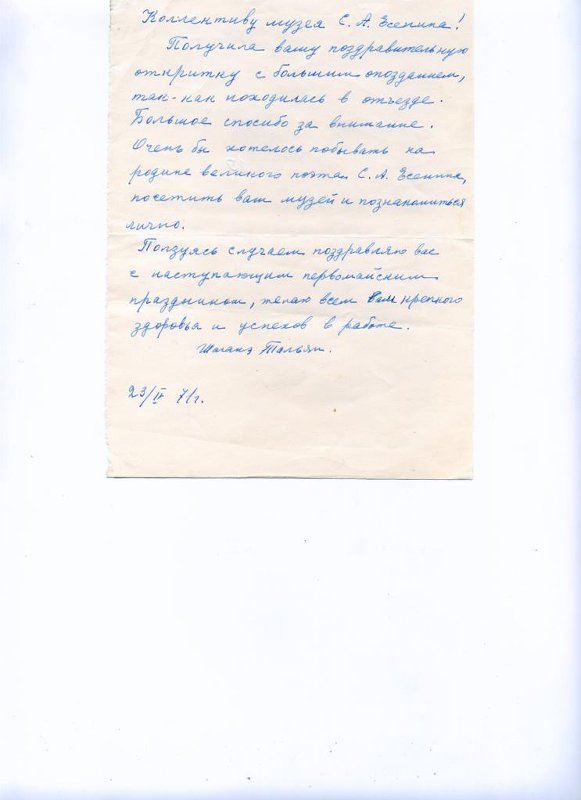 Коллективу музея С. А. Есенина!
Получила вашу поздравительную
открытку с большим опозданием,
так-как находилась в отъезде.
Большое спасибо за внимание.
Очень бы хотелось побывать на
родине великого поэта С. А. Есенина,
посетить ваш музей и познакомиться
лично.
Ползуясь случаем поздравляю вас
с наступающим первомайским
праздником, желаю всем вам крепкого
здоровья и успехов в работе.
Шаганэ Тальян.
23/IV 71г.